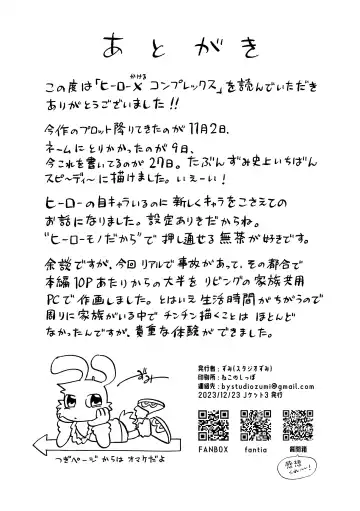 あとがき
この度は「ヒーローXコンプレックス」を読んでいただき
かける
ありがとうございました!!
今作のプロット降りてきたのが11月2日、
ネームにとりかかったのが9日、
今これを書いてるのが27日。たぶんずみ史上いちばん
スピーディーに描けました。いえーい!
ヒーローの自キャラいるのに新しくキャラをこさえての
お話になりました。設定ありきだからね。
"ヒーローモノだから"で押し通せる無茶が好きです。
余談ですが、今回リアルで事故があって、その都合で
本編10Pあたりからの大半をリビングの家族共用
PCで作画しました。とはいえ生活時間がちがうので
周りに家族がいる中でチンチン描くことはほとんど
なかったんですが、貴重な体験ができました。
ずみ
つぎページからはオマケだよ
発行者:ずみ(スタジオずみ)
印刷所:ねこのしっぽ
連絡先:bystudiozumi@gmail.com
2023/12/23 Jケット3 発行
FANBOX fantia 質問箱
感想
くれ〜!